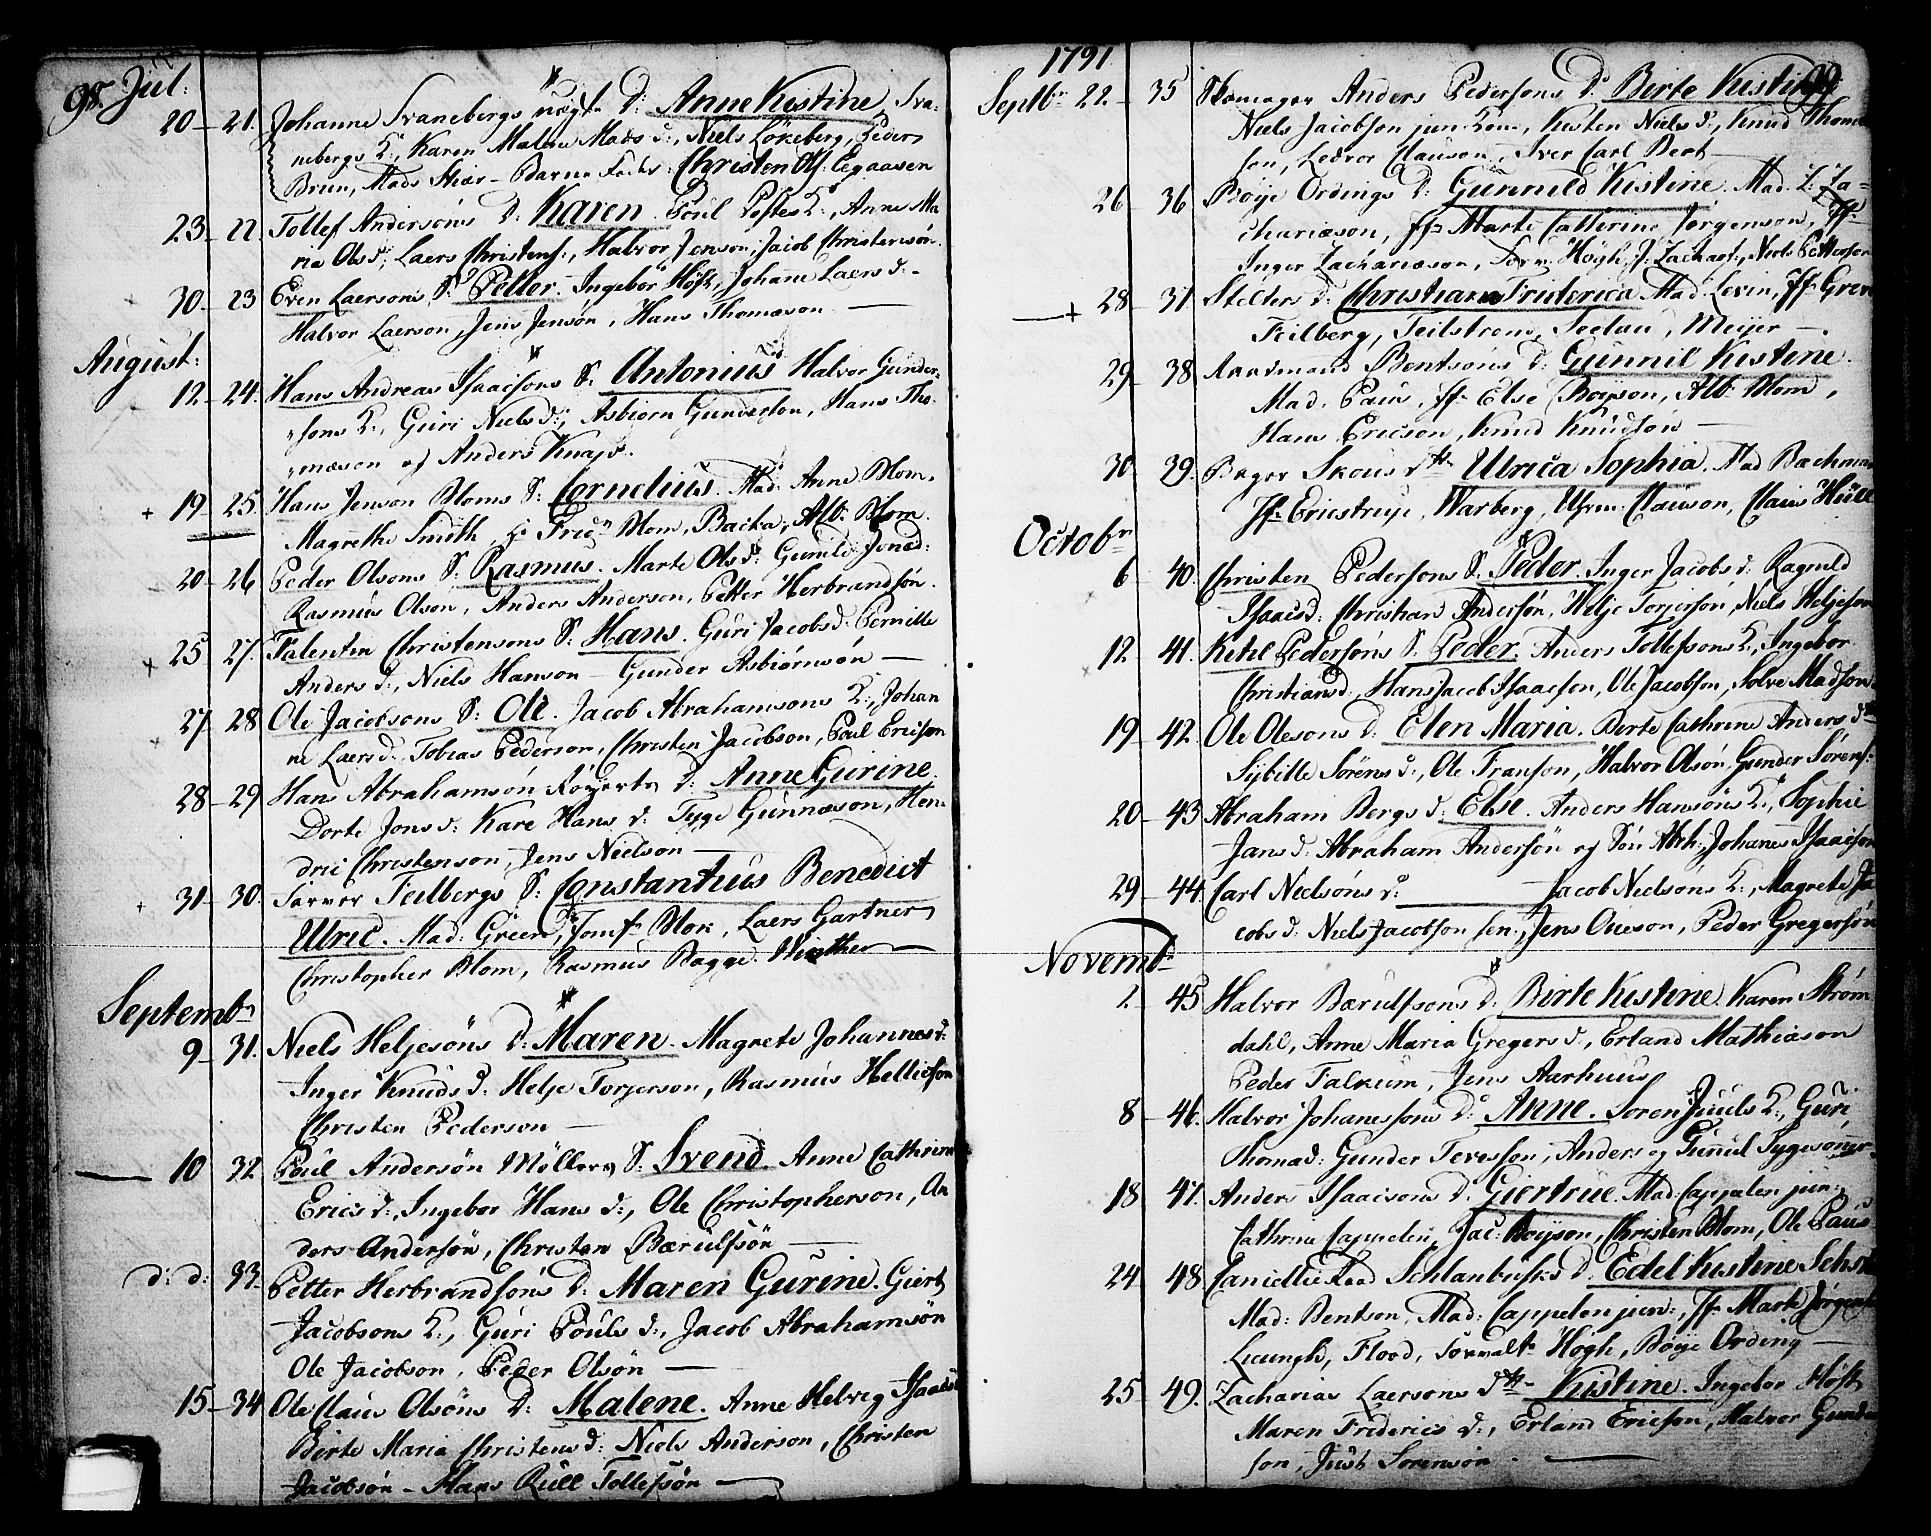 98. Jul:
20 – 21. Johanne Svanebergs uægte D: Anne Kistine, Sva-
nebergs K:, Karen Malene Mads d:, Niels Lökeberg, Peder
Brun, Mads Skiær – Barne Fader: Christen Ols: Eegaasen
23 – 22. Tollef Andersöns D: Karen. Poul Postes K:, Anne Ma
ria Ols d:, Laers Christens:, Halvor Jenson, Jacob Christensön.
30 – 23 Even Laersons S: Petter. Ingebor Höst, Johane Laers d: –
Halvor Laerson, Jens Jensön, Hans Thomæson –
August:
12 – 24. Hans Andreas Isaacsons S: Antonius Halvor Gunder-
sons K:, Guri Niels d:, Asbiorn Gunderson, Hans Tho-
mæson og Anders Knap.
+ 19 – 25. Hans Jenson Bloms S: Cornelius. Mad: Anne Blom,
Magrethe Smith, Hr Frid: Blom, Backa, Alb: Blom.
20 – 26 Peder Olsons S: Rasmus. Marte Ols d: Gunild Jonæd:
Rasmus Olson, Anders Anderson, Petter Herbrandsön.
+ 25 – 27. Falentin Christensons S: Hans. Guri Jacobs d: Pernille
Anders d:, Niels Hanson – Gunder Asbiörnsön –
27 – 28 Ole Jacobsons S: Ole. Jacob Abrahamsons K:, Johan
ne Laers d: Tobias Pederson, Christen Jacobson, Poul Ericson
28 – 29 Hans Abrahamsön Röyerts D: Anne Gurine,
Dorte Jons d: Kare Hans d: Tyge Gunnæson, Hen
dric Christenson, Jens Nielson –
+ 31 – 30. Farver Feilbergs S: Constantius Benedict
Ulric. Mad: Green, Jomfr Blok, Laers Gartner
Christopher Blom, Rasmus Bagge. Winther
Septembr
9 – 31. Niels Heljesöns D: Maren. Magrete Johannes d:
Inger Knuds d: Helje Torjerson, Rasmus Hellieson
Christen Pederson –
10 32 Poul Andersön Möllers S: Svend. Anne Cathrine
Erics d:, Ingebor Hans d:, Ole Christopherson, An
ders Andersön, Christen Bærulfsön –
d: d: 33. Petter Herbrandsöns D: Maren Gurine. Giert
Jacobsons K:, Guri Pouls d:, Jacob Abrahamsön
Ole Jacobson, Peder Olsön –
15 – 34 Ole Claus Olsöns D: Malene. Anne Helvig Isaacs d
Birte Maria Christens d: Niels Anderson, Christen
Jacobsön – Hans Rull Tollefsön –
1791 99
Septbr 22 – 35 Skomager Anders Pedersons D: Birte Kistine
Niels Jacobson jun: Kone, Kisten Niels d:, Knud Thomæ
son, Ledvor Clauson, Iver Carl Bert –
26 36 Böye Ordings D: Gunnild Kistine. Mad: Z: Za-
chariæson, Jfr Marte Cathrine Jörgenson, Jfr
Inger Zachariæson, Forv: Högh, J: Zachars:, Niels Petterson
+ 28 – 37 Stelters d: Christiana Friderica Mad: Levin, Jfr Green
Feilberg, Feilstrom, Seelau, Meijer –
29 – 38. Bentsöns D: Gunnil Kistine.
Mad. Paus, Jfr Else Boyson, Alb: Blom,
Hans Ericson, Knud Knudsön –
30 – 39. Bager Skous dtr Ulrica Sophia. Mad Bachman
Jfr Ericstrup, Warberg, Clauson, Claus Hull
Octobr
6 – 40. Christen Pedersons S: Peder. Inger Jacobs d: Ragnild
Isaacs d: Christian Andersön, Helje Torjerson, Niels Heljeson
12 – 41. Kihl Pedersöns S: Peder. Anders Tollefsons K:, Ingebor
Christians d:, Hans Jacob Isaacson, Ole Jacobson, Solve Madson
19 – 42. Ole Olesons D: Elen Maria. Berte Cathrine Anders dtr
Sybille Sörens d:, Ole Franson, Halvor Olsön, Gunder Sörens:
20 – 43 Abraham Bergs D: Else. Anders Hansöns K:, Sophie
Jans d: Abraham Andersön og Sön Abrh: Johanes Isaacson
29 – 44 Carl Nielsöns D: Jacob Nielsöns K:, Magrete Ja
cobs d: Niels Jacobson sen:, Jens Oueson, Peder Gregersön
Novembr
2 – 45 Halvor Bærulfsons D: Birte Kistine. Karen Ström
dahl, Anne Maria Gregers d:, Erland Mathiason
Peder Falkum, Jens Aarhuus
8 – 46. Halvor Johanessons D: Anne. Soren Juuls K:, Guri
Thomæd: Gunder Tevesson, Anders og Gunul Tygesöner
18 – 47. Anders Isaacsons D: Giertrue. Mad: Cappelen jun:,
Cathrine Cappelen, Jac: Boyson, Christen Blom, Ole Paus
24 – 48. Cancellie Raad Schlanbusks D: Edel Kistine
Mad: Bentson, Mad: Cappelen jun:, Jfr Marte Jörgens
Flood, Forvaltr Högh, Böye Ording –
25 – 49. Zacharias Laersons dtr Kistine. Ingebor Höst
Maren Friderics d:, Erland Ericson, Halvor Gunder
son, Just Sorensön –